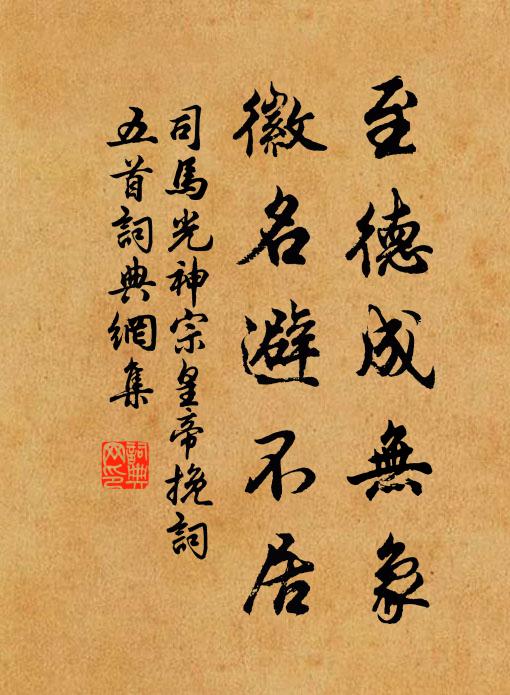 至德成無象
徽名避不居
司馬光神宗皇帝挽詞
五首詞典網集
詞典
网印